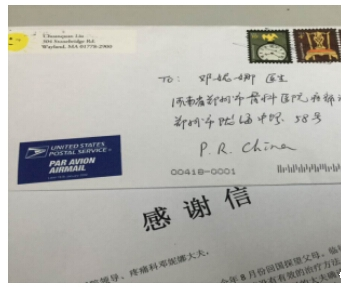 Chuanquan Lin
301 Stonebridge Rd.
Wayland, MA 01778-2901
TO: 邓妮娜 医生
河南省郑州市骨科医院
郑州市陇海中路 58号
P. R. China
UNITED STATES
POSTAL SERVICE
PAR AVION
AIRMAIL
00418-0001
感谢信
院领导、疼痛科邓妮娜大夫。
年8月份回国探望父母,
有效的治疗方法